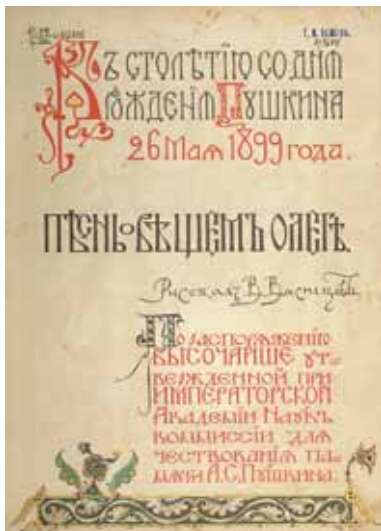 Къ столѣтію со дня
рожденія Пушкина
26 Мая 1899 года.
ПѢСНЬ О ВѢЩЕМЪ ОЛЕГѢ.
Рисовалъ В. Васнецовъ
По распоряженію
ВЫСОЧАЙШЕ ут-
вержденной при
ИМПЕРАТОРСКОЙ
Академіи Наукъ
коммиссіи для
чествованія па-
мяти А.С. Пушкина.